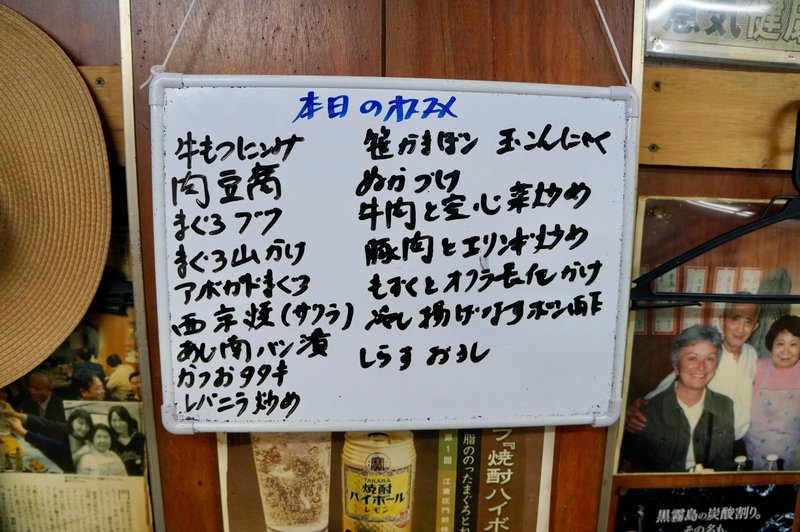 本日のオススメ
牛もつにこみ
肉豆腐
まぐろブツ
まぐろ山かけ
アボガドまぐろ
西京焼(サワラ)
あじ南バン漬
かつおタタキ
レバニラ炒め
笹かまぼこ 玉こんにゃく
ぬかづけ
牛肉と空心菜炒め
豚肉とエリンギ炒め
もずくとオクラ かけ
冷し揚げなすポン酢
しらすおろし
元気健康
TAKARA
焼酎
ハイボール
レモン
『焼酎ハイボ
脂ののったまぐろと
第1回 江東区門前仲
黒霧島の炭酸割り。
その名も